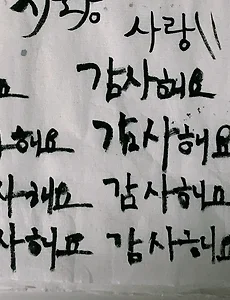 사랑 사랑
요 감사해요
사해요 감사해요
사해요 감사해요
사해요 감사해요